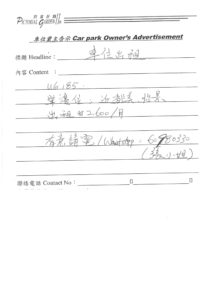 PICTORIAL GARDEN II
車位業主告示 Car park Owner's Advertisement
標題 Headline： 車位出租
內容 Content ：
UG 185.
單邊位, 近
出租 $2600/月
有意請電/Whatsapp
(張小姐)
聯絡電話 Contact No：